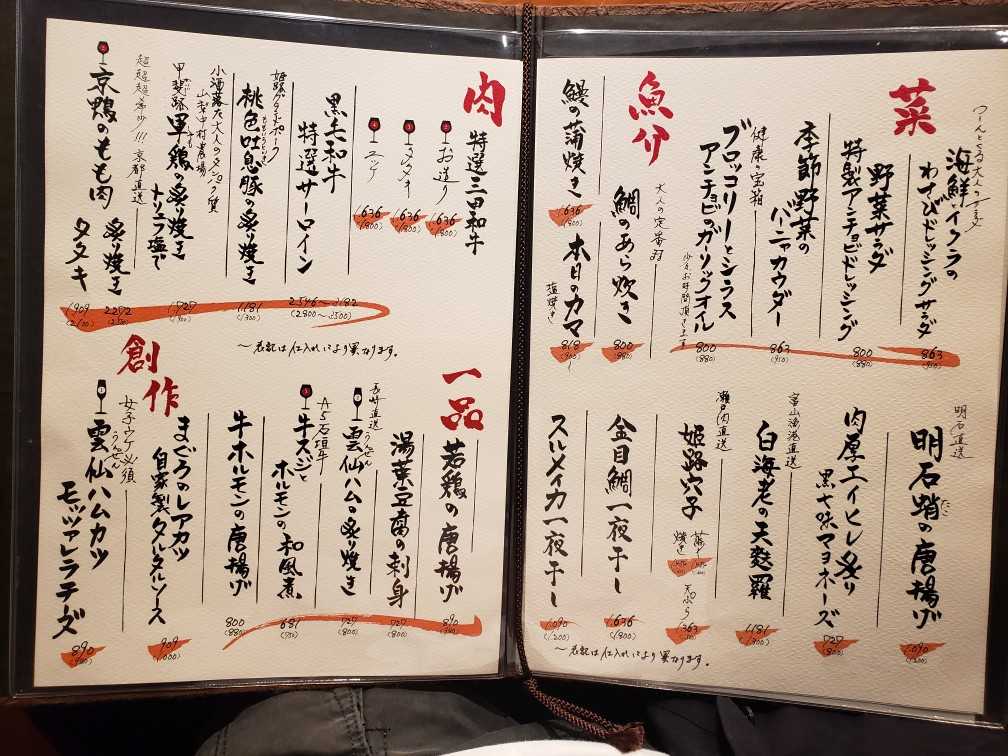 菜
つーんとくる大人のサラダ
海鮮イクラの
わさびドレッシングサラダ
863
(950)
野菜サラダ
特製アンチョビドレッシング
800
(880)
季節野菜の
バーニャカウダー
863
(950)
健康の宝箱
ブロッコリーとシラス
アンチョビのガーリックオイル
少々お時間頂きます
800
(880)
魚介
大人の定番
鯛のあら炊き
800
(880)
鰻の蒲焼き
1,636
(1,800)
本日のカマ
塩焼き
818
(900)
明石直送
明石蛸の唐揚げ
たこ
1,090
(1,200)
肉厚エイヒレ炙り
黒七味マヨネーズ
727
(800)
富山漁港直送
白海老の天麩羅
1,181
(1,300)
瀬戸内直送
姫路穴子
天ぷら
1,363
金目鯛一夜干し
1,636
(1,800)
スルメイカ一夜干し
1,090
(1,200)
〜表記は仕入れにより異なります。
肉
特選三田和牛
お造り
1,636
(1,800)
タタキ
1,636
(1,800)
ニック
1,636
(1,800)
黒毛和牛
特選サーロイン
2546〜3182
(2800〜3500)
桃色吐息豚の炙り焼き
1,181
(1,300)
小洒落た大人のタンパク質
山梨中村農場
甲斐路軍鶏の炙り焼き
トリュフ塩で
1,727
(1,900)
超超超希少!!!京都直送
京鴨のもも肉
炙り焼き
2272
(2,500)
タタキ
1,909
(2,100)
〜表記は仕入れにより異なります。
一品
若鶏の唐揚げ
890
湯葉豆腐の刺身
727
(800)
長崎直送
うんぜん
雲仙ハムの炙り焼き
727
(800)
A5石垣牛
牛スジと
ホルモンの和風煮
681
(750)
牛ホルモンの唐揚げ
800
(880)
創作
まぐろのレアカツ
自家製タルタルソース
909
(1,000)
女子ウケ必須
うんぜん
雲仙ハムカツ
モッツァレラチーズ
890